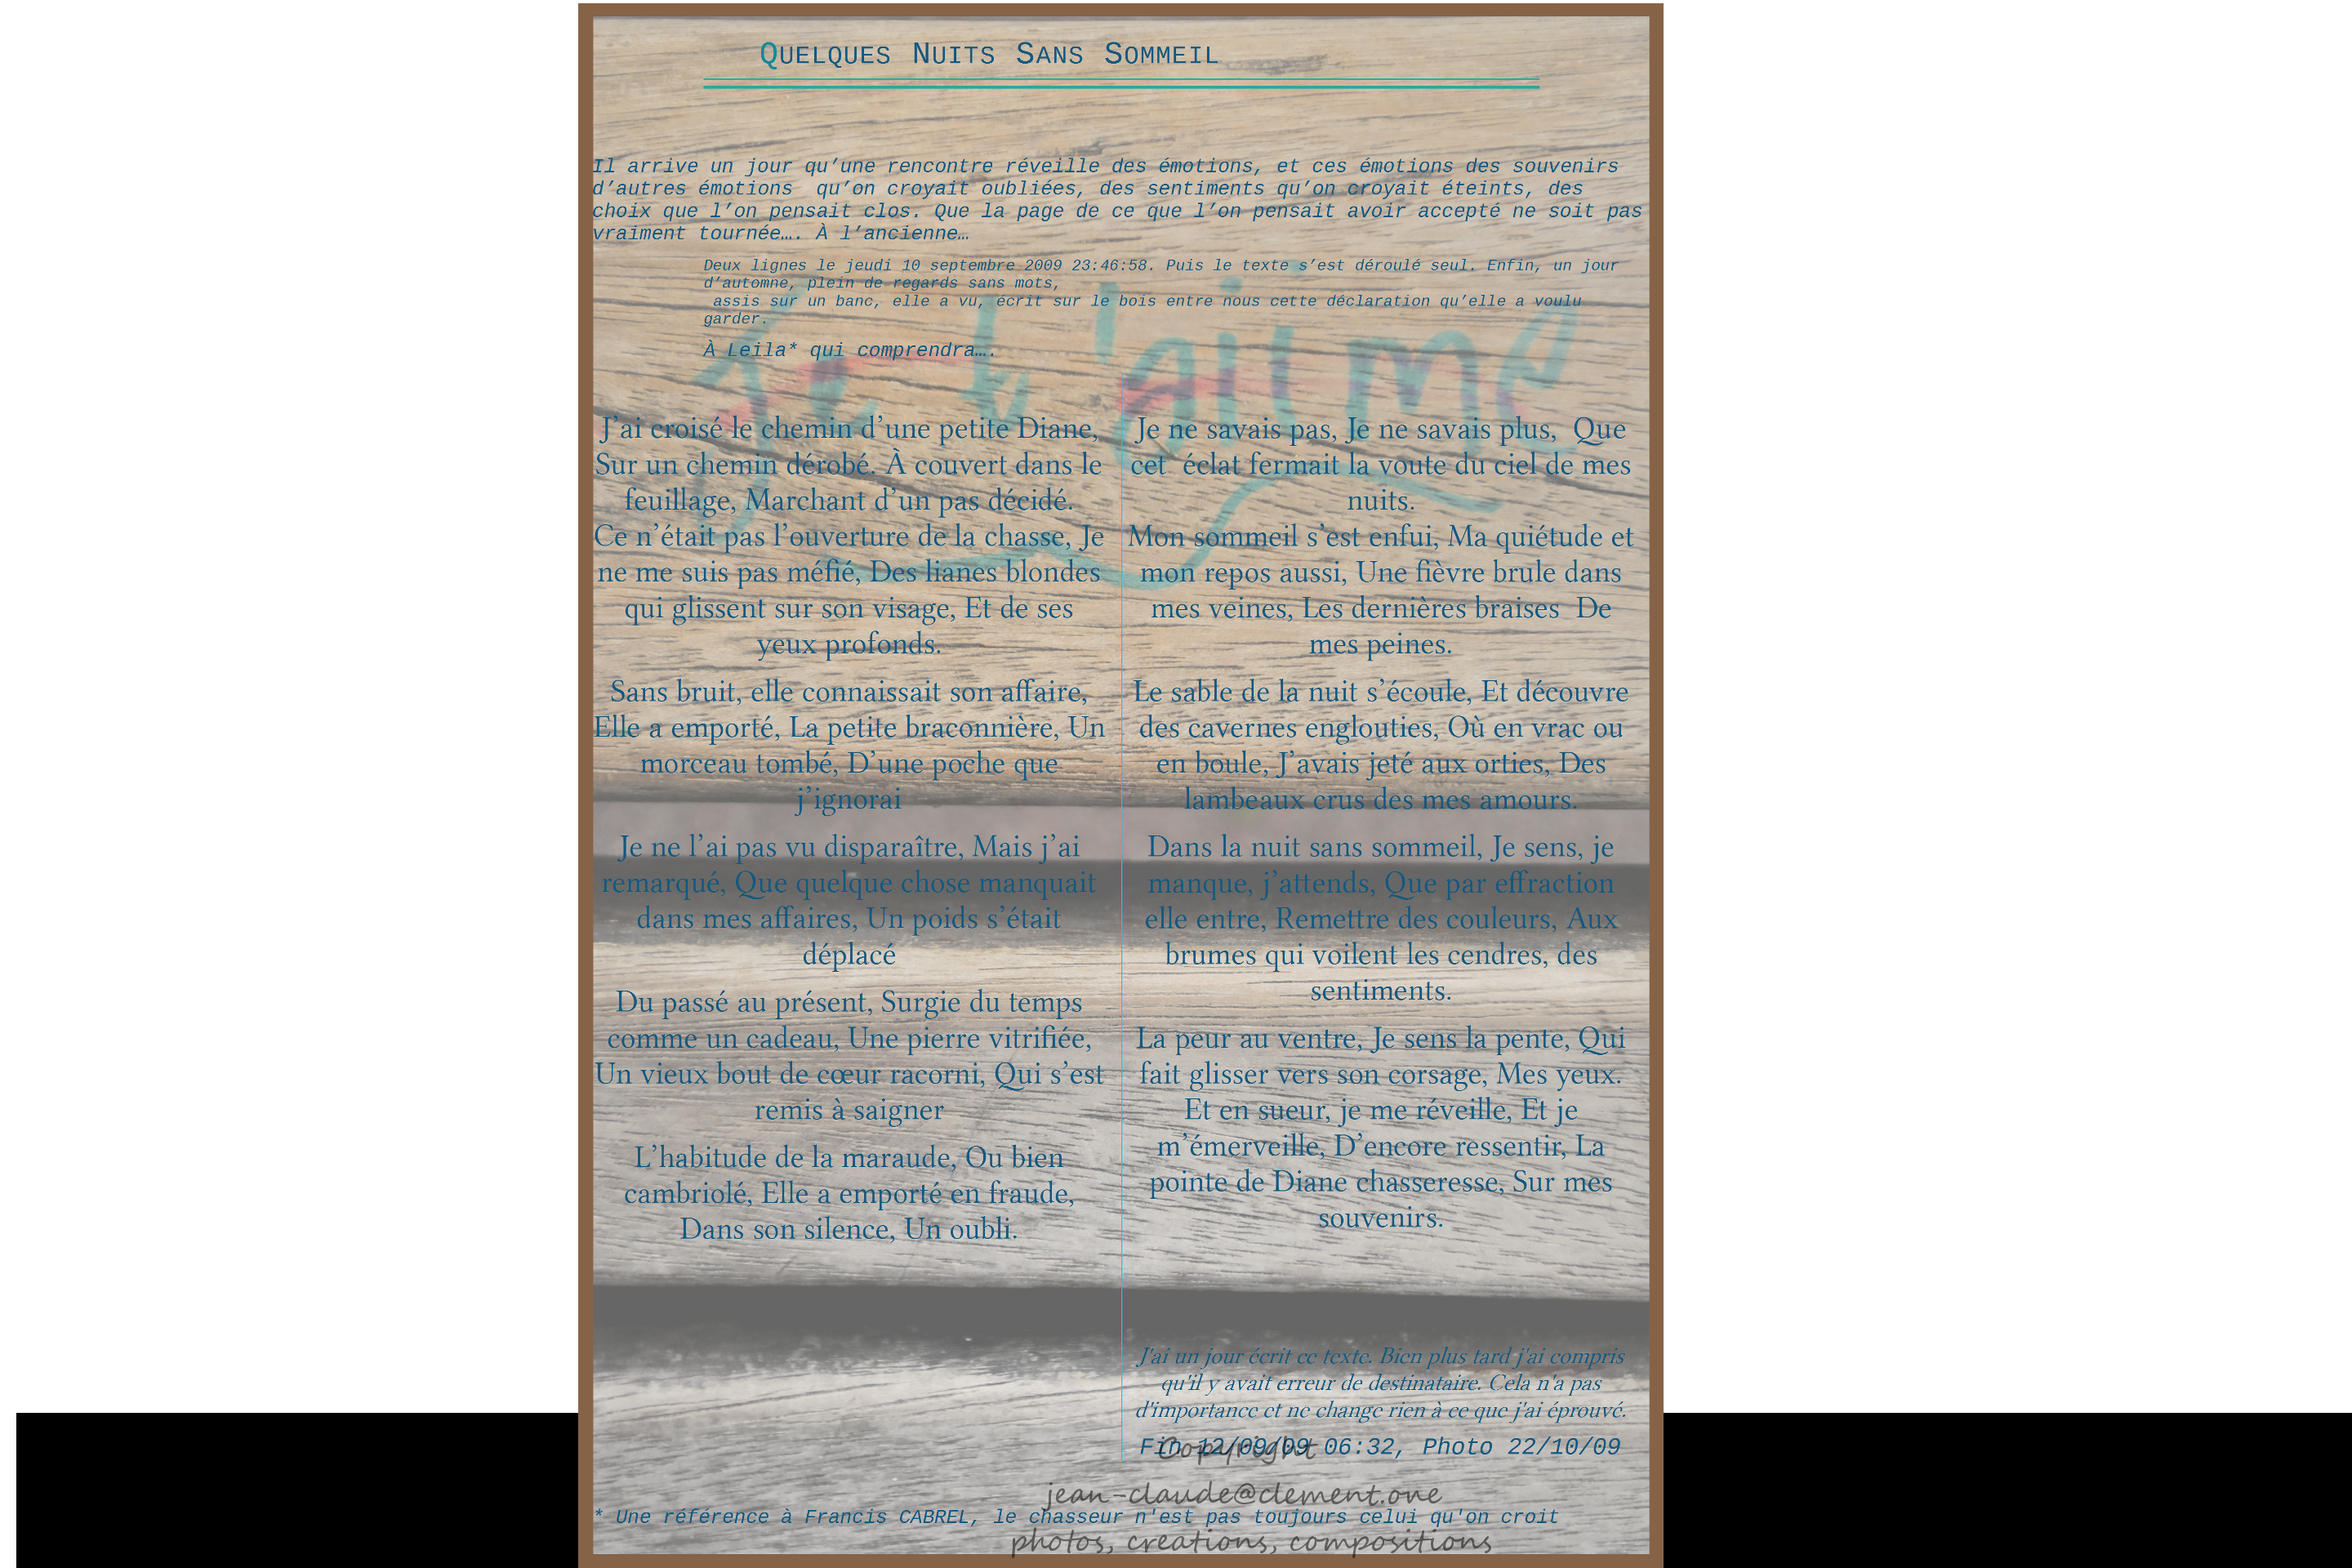 Quelques Nuits Sans Sommeil
Il arrive un jour qu’une rencontre réveille des émotions, et ces émotions des souvenirs
d’autres émotions  qu’on croyait oubliées, des sentiments qu’on croyait éteints, des
choix que l’on pensait clos. Que la page de ce que l’on pensait avoir accepté ne soit pas
vraiment tournée…. À l’ancienne…
Deux lignes le jeudi 10 septembre 2009 23:46:58. Puis le texte s’est déroulé seul. Enfin, un jour
d’automne, plein de regards sans mots,
assis sur un banc, elle a vu, écrit sur le bois entre nous cette déclaration qu’elle a voulu
garder.
À Leila* qui comprendra….
Je t'aime
J’ai croisé le chemin d’une petite Diane,
Sur un chemin dérobé. À couvert dans le
feuillage, Marchant d’un pas décidé.
Ce n’était pas l’ouverture de la chasse, Je
ne me suis pas méfié, Des lianes blondes
qui glissent sur son visage, Et de ses
yeux profonds.
Sans bruit, elle connaissait son affaire,
Elle a emporté, La petite braconnière, Un
morceau tombé, D’une poche que
j’ignorai
Je ne l’ai pas vu disparaître, Mais j’ai
remarqué, Que quelque chose manquait
dans mes affaires, Un poids s’était
déplacé
Du passé au présent, Surgie du temps
comme un cadeau, Une pierre vitrifiée,
Un vieux bout de cœur racorni, Qui s’est
remis à saigner
L’habitude de la maraude, Ou bien
cambriolé, Elle a emporté en fraude,
Dans son silence, Un oubli.
Je ne savais pas, Je ne savais plus,  Que
cet  éclat fermait la voute du ciel de mes
nuits.
Mon sommeil s’est enfui, Ma quiétude et
mon repos aussi, Une fièvre brule dans
mes veines, Les dernières braises  De
mes peines.
Le sable de la nuit s’écoule, Et découvre
des cavernes englouties, Où en vrac ou
en boule, J’avais jeté aux orties, Des
lambeaux crus des mes amours.
Dans la nuit sans sommeil, Je sens, je
manque, j’attends, Que par effraction
elle entre, Remettre des couleurs, Aux
brumes qui voilent les cendres, des
sentiments.
La peur au ventre, Je sens la pente, Qui
fait glisser vers son corsage, Mes yeux.
Et en sueur, je me réveille, Et je
m’émerveille, D’encore ressentir, La
pointe de Diane chasseresse, Sur mes
souvenirs.
J'ai un jour écrit ce texte. Bien plus tard j'ai compris
qu'il y avait erreur de destinataire. Cela n'a pas
d'importance et ne change rien à ce que j'ai éprouvé.
Fin 12/09/09 06:32, Photo 22/10/09
Copyright
jean-claude@clement.one
* Une référence à Francis CABREL, le chasseur n'est pas toujours celui qu'on croit
photos, creations, compositions